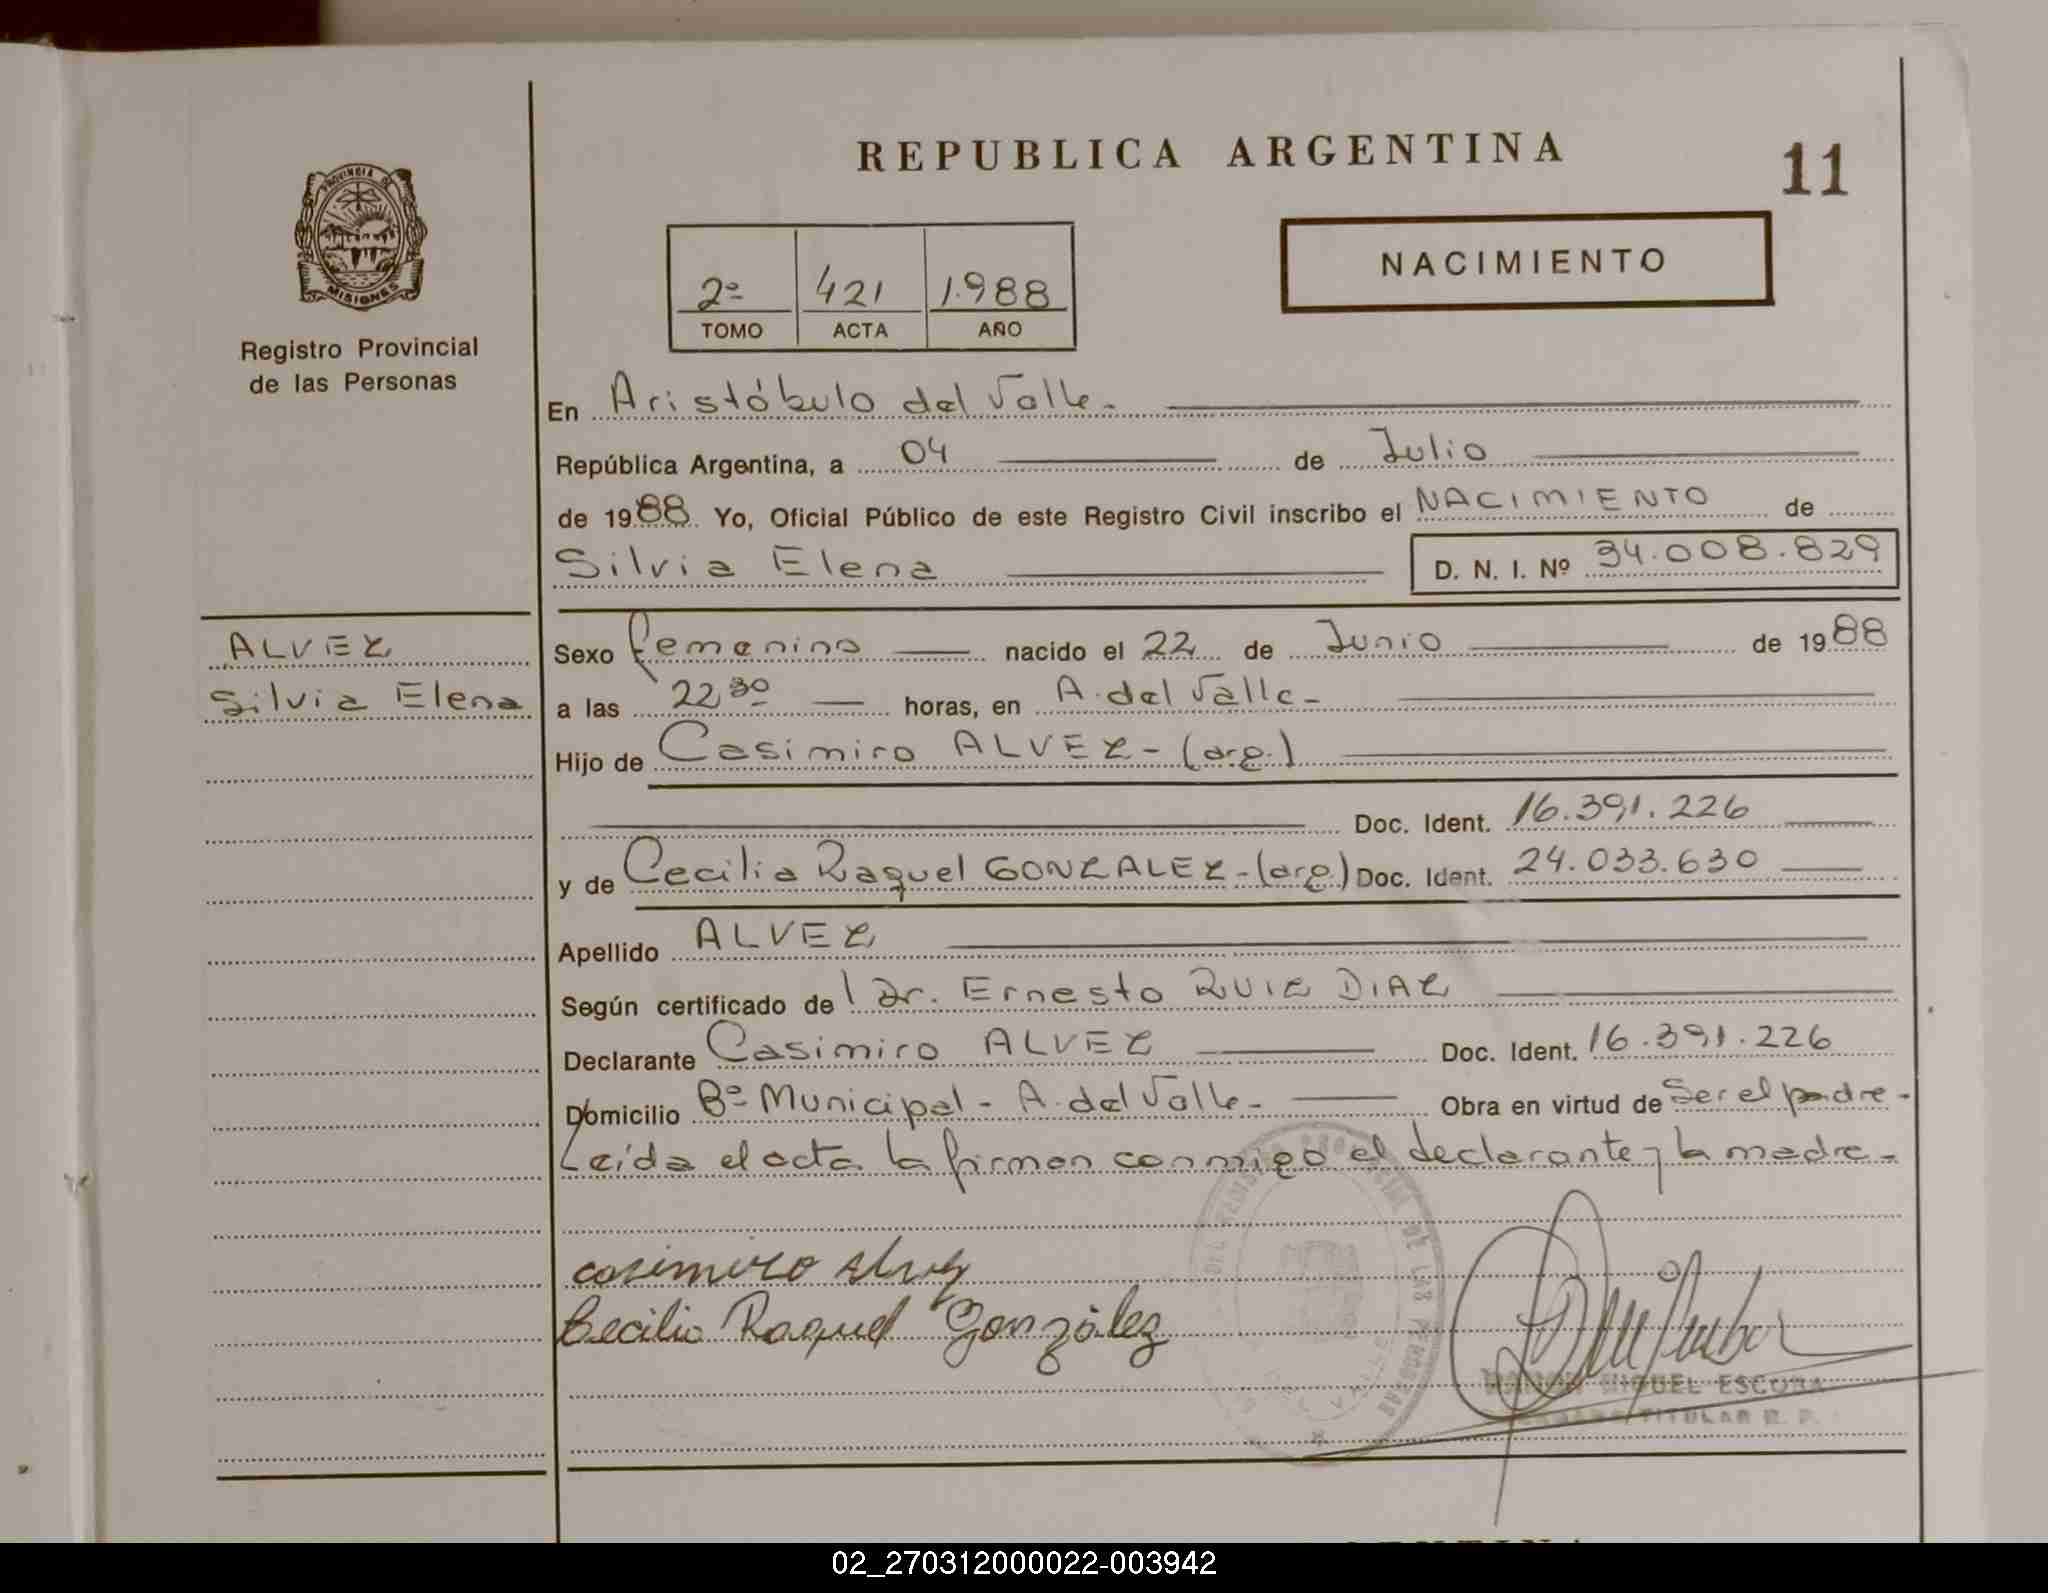 REPUBLICA ARGENTINA
11
PROVINCIA DE
MISIONES
Registro Provincial
de las Personas
2º 421 1.988
TOMO ACTA AÑO
NACIMIENTO
En Aristóbulo del Valle.
República Argentina, a 04 de Julio
de 1988 Yo, Oficial Público de este Registro Civil inscribo el NACIMIENTO de
Silvia Elena D. N. I. Nº 34.008.829
ALVEZ
Silvia Elena
Sexo femenino nacido el 22 de Junio de 1988
a las 22 30 horas, en A. del Valle-
Hijo de Casimiro ALVEZ - (arg.)
Doc. Ident. 16.391.226
y de Cecilia Raquel GONZALEZ - (arg.) Doc. Ident. 24.033.630
Apellido ALVEZ
Según certificado del Dr. Ernesto RUIZ DIAZ
Declarante Casimiro ALVEZ Doc. Ident. 16.391.226
Domicilio Bº Municipal - A. del Valle - Obra en virtud de Ser el padre -
Leída el acta la firman conmigo el declarante y la madre -
casimiro alvez
Cecilia Raquel González
RAMON MIGUEL ESCOBA
TITULAR R. P.
02_270312000022-003942